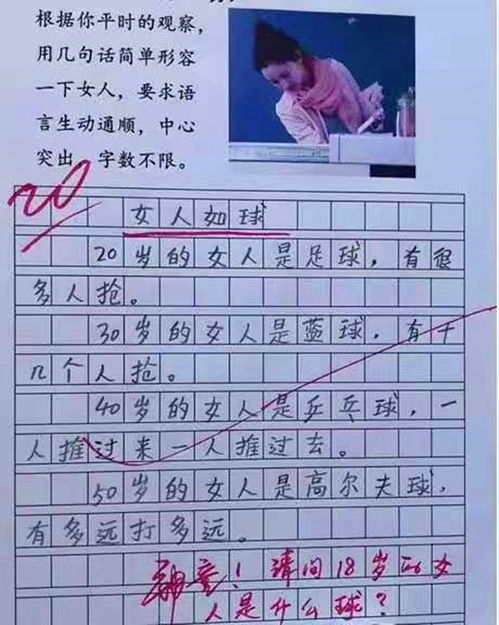 根据你平时的观察，
用几句话简单形容
一下女人，要求语
言生动通顺，中心
突出，字数不限。
20
女人如球
20岁的女人是足球，有很
多人抢。
30岁的女人是蓝球，有十
几个人抢。
40岁的女人是乒乓球，一
人推过来一人推过去。
50岁的女人是高尔夫球，
有多远打多远。
神童！请问18岁的女
人是什么球？